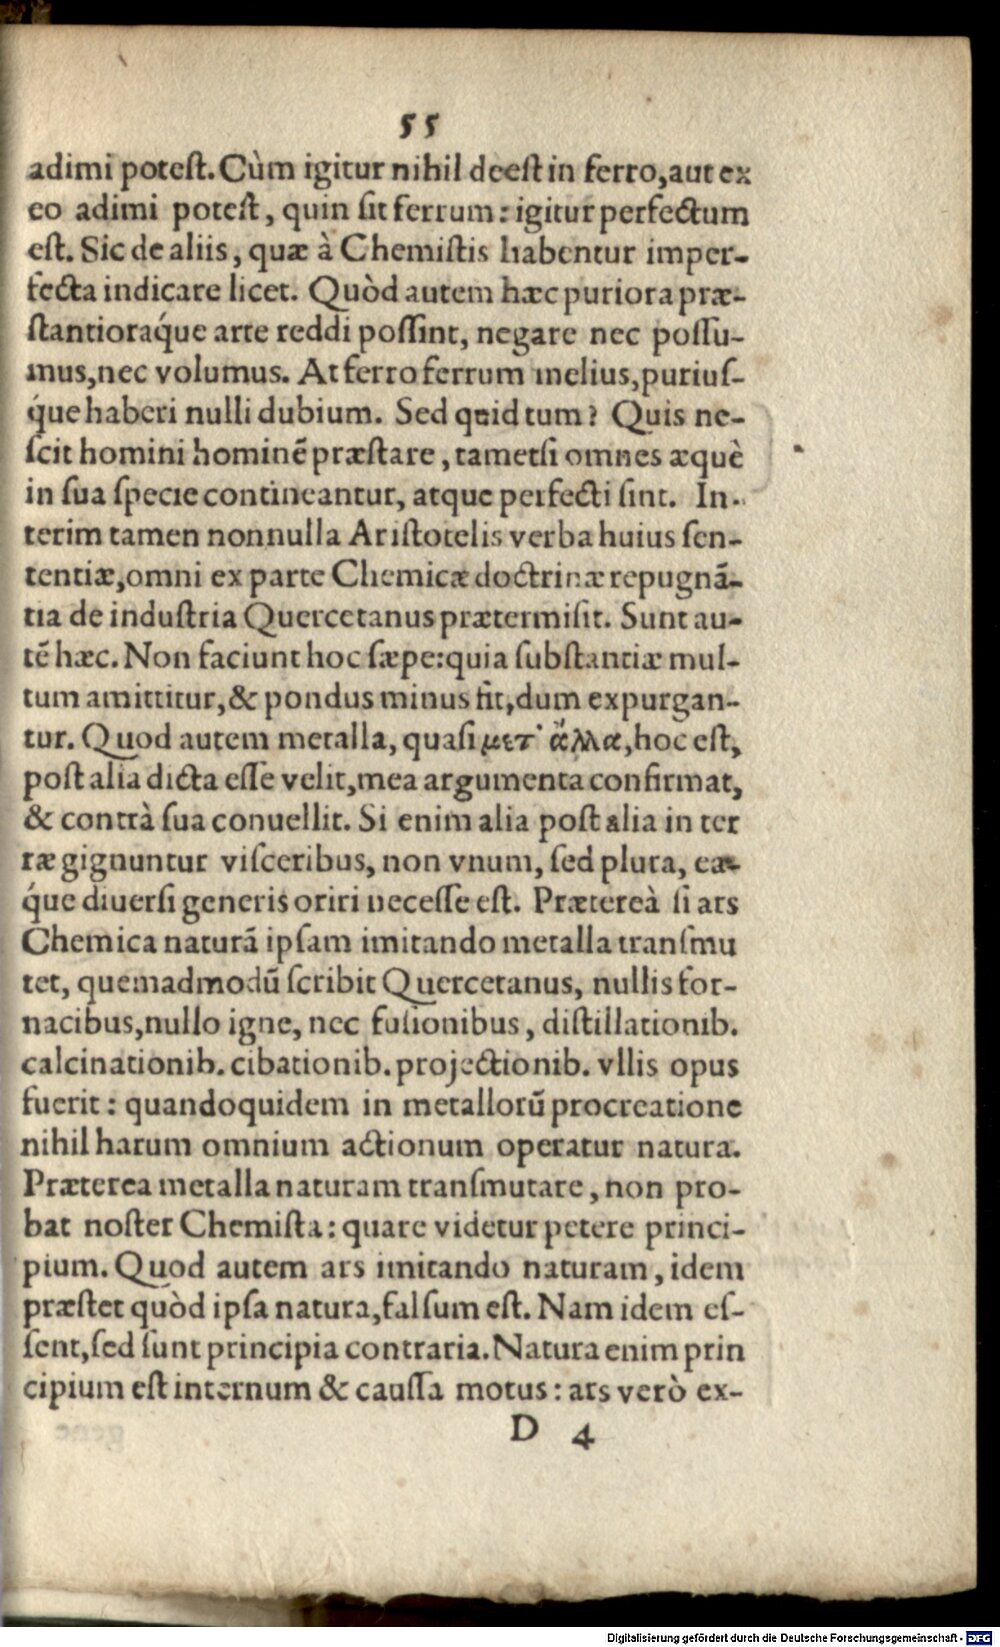 55
adimi potest. Cùm igitur nihil deest in ferro, aut ex
eo adimi potest, quin sit ferrum: igitur perfectum
est. Sic de aliis, quæ à Chemistis habentur imper-
fecta indicare licet. Quòd autem hæc puriora præ-
stantioraq́ue arte reddi possint, negare nec possu-
mus, nec volumus. At ferro ferrum melius, puriuſ-
q́ue haberi nulli dubium. Sed quid tum? Quis ne-
scit homini hominẽ præstare, tametsi omnes æquè
in sua specie contineantur, atque perfecti sint. In-
terim tamen nonnulla Aristotelis verba huius sen-
tentiæ, omni ex parte Chemicæ doctrinæ repugnã-
tia de industria Quercetanus prætermisit. Sunt au-
tẽ hæc. Non faciunt hoc sæpe: quia substantiæ mul-
tum amittitur, & pondus minus fit, dum expurgan-
tur. Quod autem metalla, quasi μετ᾽ ἄλλα, hoc est,
post alia dicta esse velit, mea argumenta confirmat,
& contrà sua conuellit. Si enim alia post alia in ter
ræ gignuntur visceribus, non vnum, sed plura, ea-
q́ue diuersi generis oriri necesse est. Prætereà si ars
Chemica naturã ipsam imitando metalla transmu
tet, quemadmodũ scribit Quercetanus, nullis for-
nacibus, nullo igne, nec fusionibus, distillationib.
calcinationib. cibationib. projectionib. vllis opus
fuerit: quandoquidem in metallorũ procreatione
nihil harum omnium actionum operatur natura.
Præterea metalla naturam transmutare, non pro-
bat noster Chemista: quare videtur petere princi-
pium. Quod autem ars imitando naturam, idem
præstet quòd ipsa natura, falsum est. Nam idem es-
sent, sed sunt principia contraria. Natura enim prin
cipium est internum & caussa motus: ars verò ex-
D 4
Digitalisierung gefördert durch die Deutsche Forschungsgemeinschaft - DFG